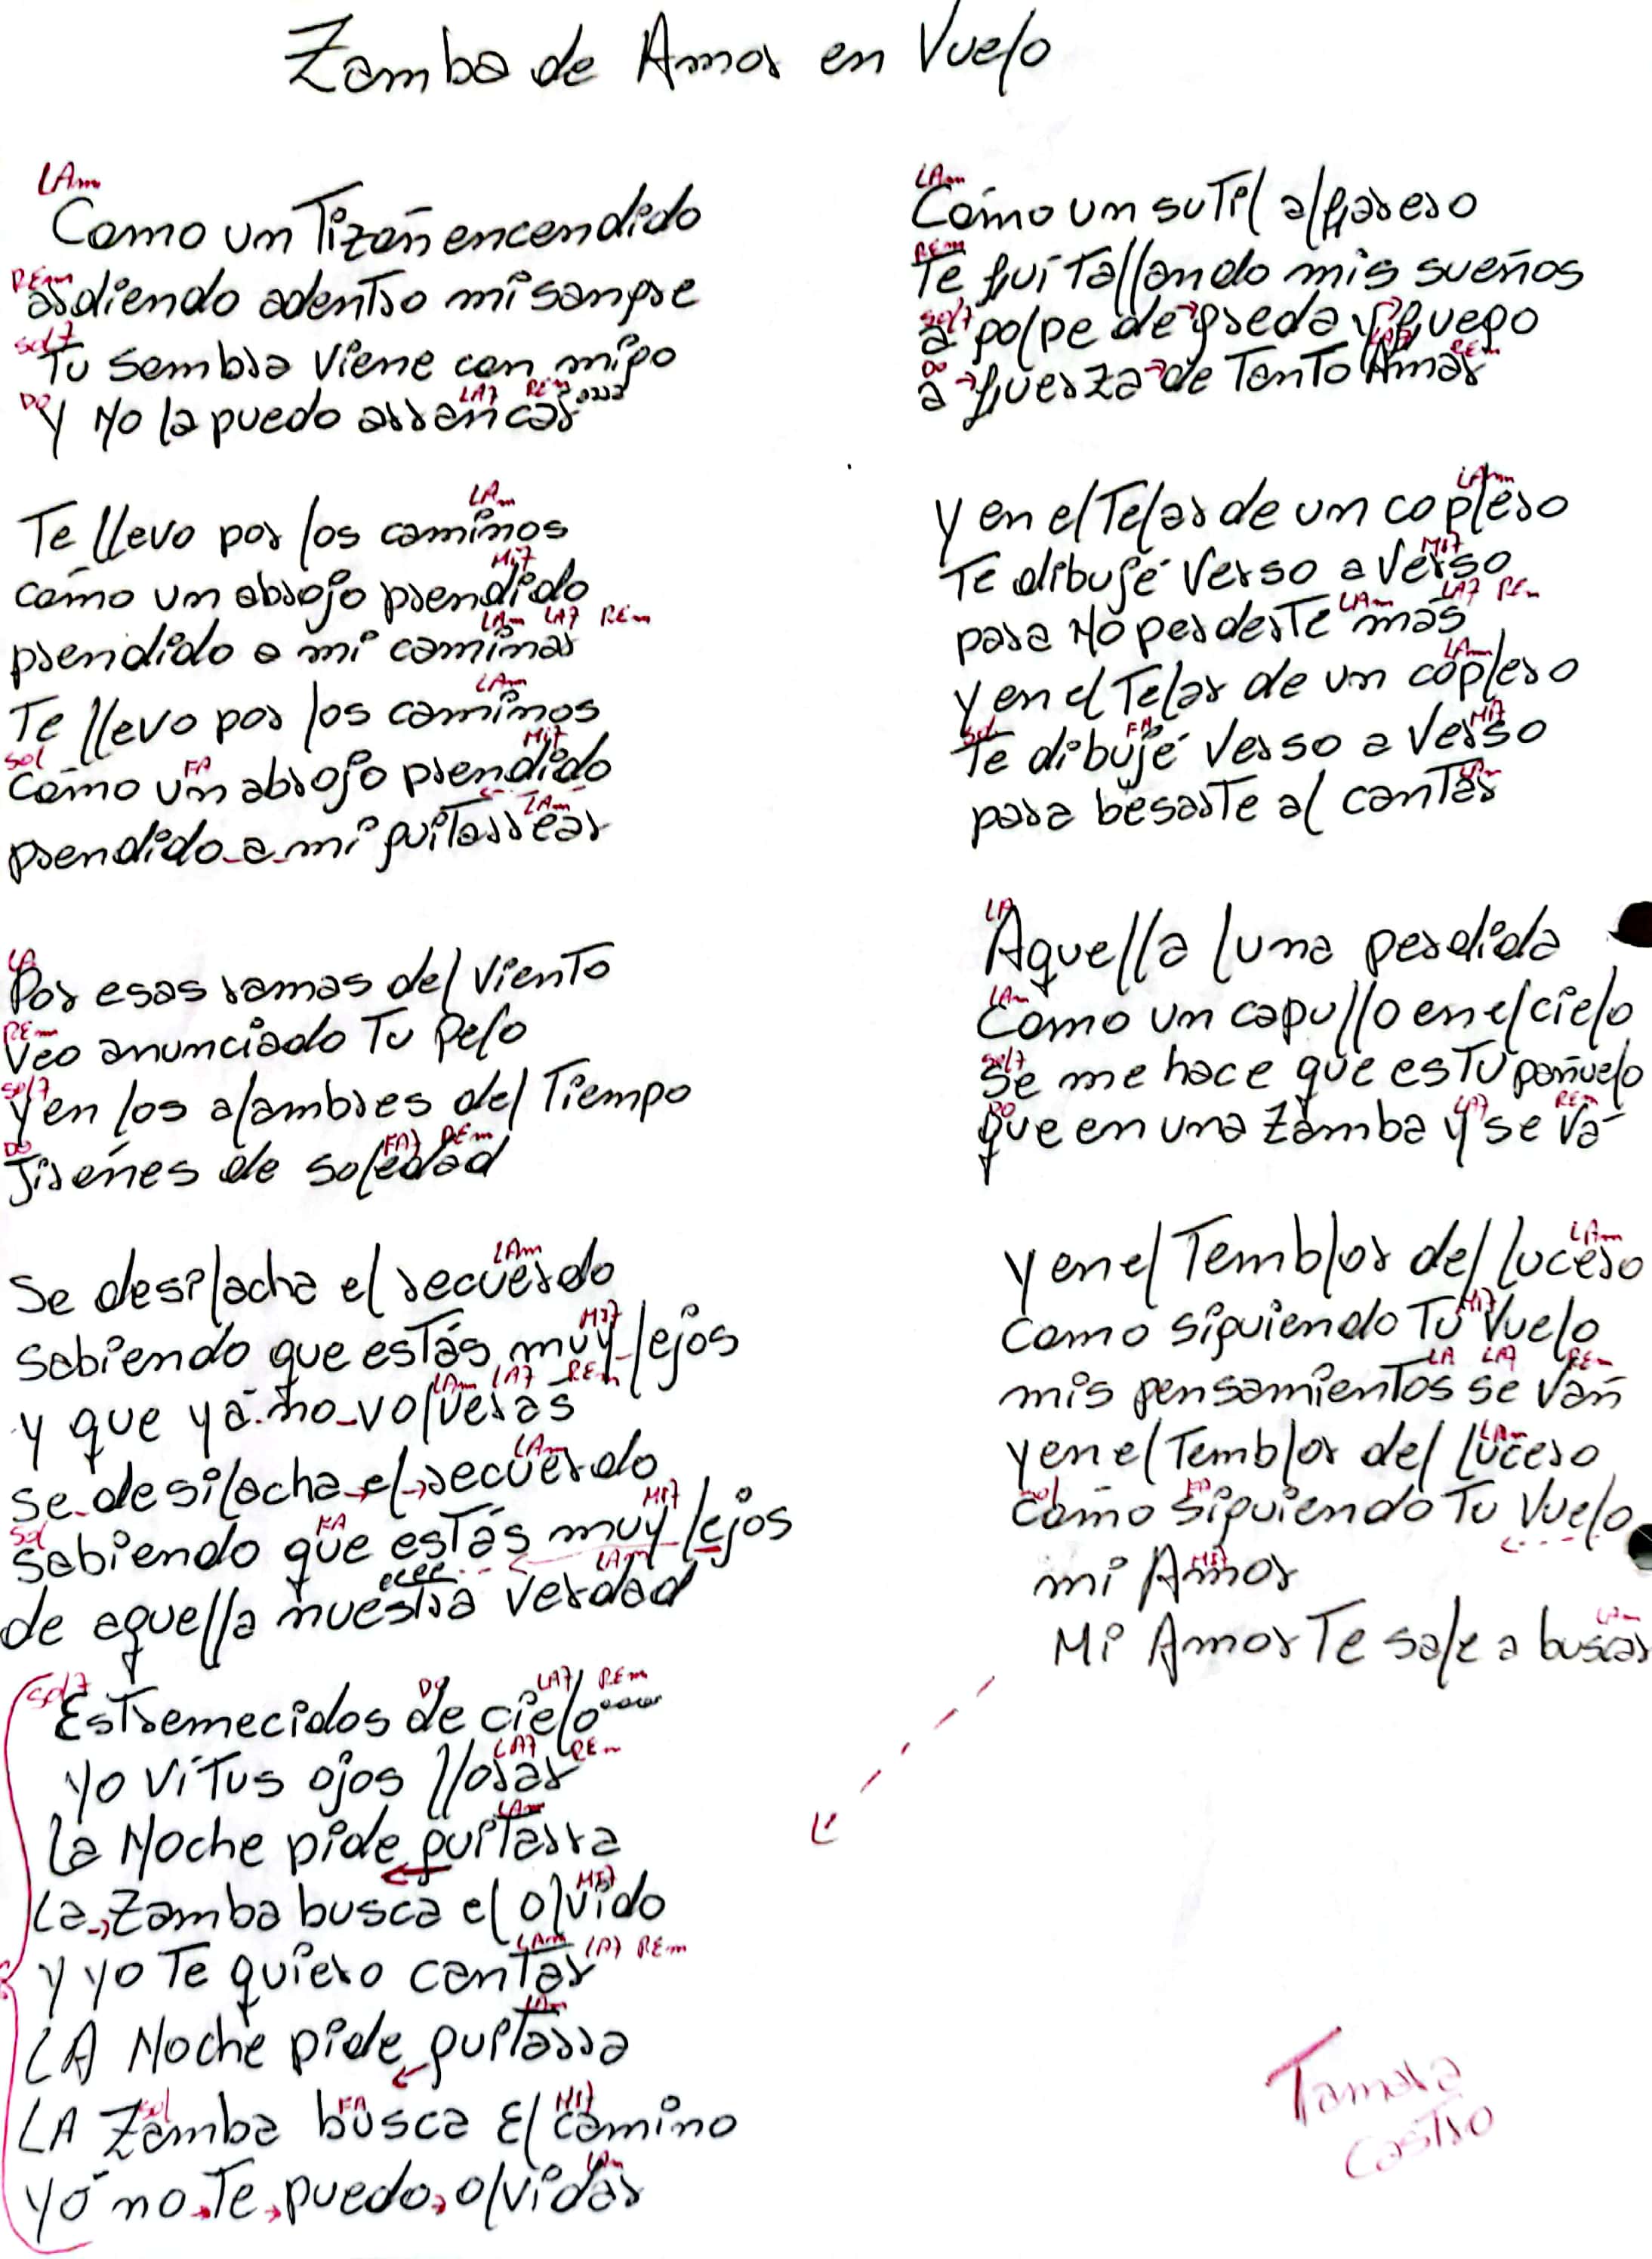 Zamba de Amor en Vuelo
LAm
Como un Tizón encendido
REm
ardiendo adentro mi sangre
sol7
Tu sombra viene conmigo
DO LA7 REm
y No la puedo arrancar
LAm
Te llevo por los caminos
Mi7
como un abrojo prendido
LAm LA7 REm
prendido a mi caminar
LAm
Te llevo por los caminos
sol FA Mi7
como un abrojo prendido
LAm
prendido a mi guitarrear
LA
Por esas ramas del viento
REm
Veo anunciado Tu pelo
sol7
y en los alambres del Tiempo
DO FA7 REm
Jirones de soledad
LAm
Se desilacha el recuerdo
MI7
sabiendo que estás muy lejos
LAm LA7 REm
y que ya no volverás
LAm
se desilacha el recuerdo
sol FA MI7
sabiendo que estás muy lejos
LAm
de aquella nuestra verdad
sol7 DO LA7 REm
Estremecidos de cielo
LA7 REm
yo ví Tus ojos llorar
LAm
La Noche pide guitarra
MI7
La Zamba busca el olvido
LAm LA7 REm
y yo Te quiero cantar
LAm
LA Noche pide guitarra
sol FA MI7
LA Zamba busca El camino
LAm
yo no Te puedo olvidar
LAm
Como un sutil alfarero
REm
Te fui Tallando mis sueños
sol7
a golpe de greda y fuego
DO LA7 REm
a fuerza de Tanto Amar
LAm
y en el Telar de un coplero
MI7
Te dibujé verso a verso
LAm LA7 REm
para No perderte más
LAm
y en el Telar de un coplero
sol FA MI7
Te dibujé verso a verso
LAm
para besarte al cantar
LA
Aquella luna perdida
LAm
Como un capullo en el cielo
sol7
Se me hace que es Tu pañuelo
DO LA7 REm
que en una Zamba y se va
LAm
y en el Temblor del lucero
MI7
como siguiendo Tu Vuelo
LA LA7 REm
mis pensamientos se van
LAm
y en el Temblor del lucero
sol FA
como siguiendo Tu Vuelo
MI7
mi Amor
LAm
Mi Amor Te sale a buscar
Tamara
Castro